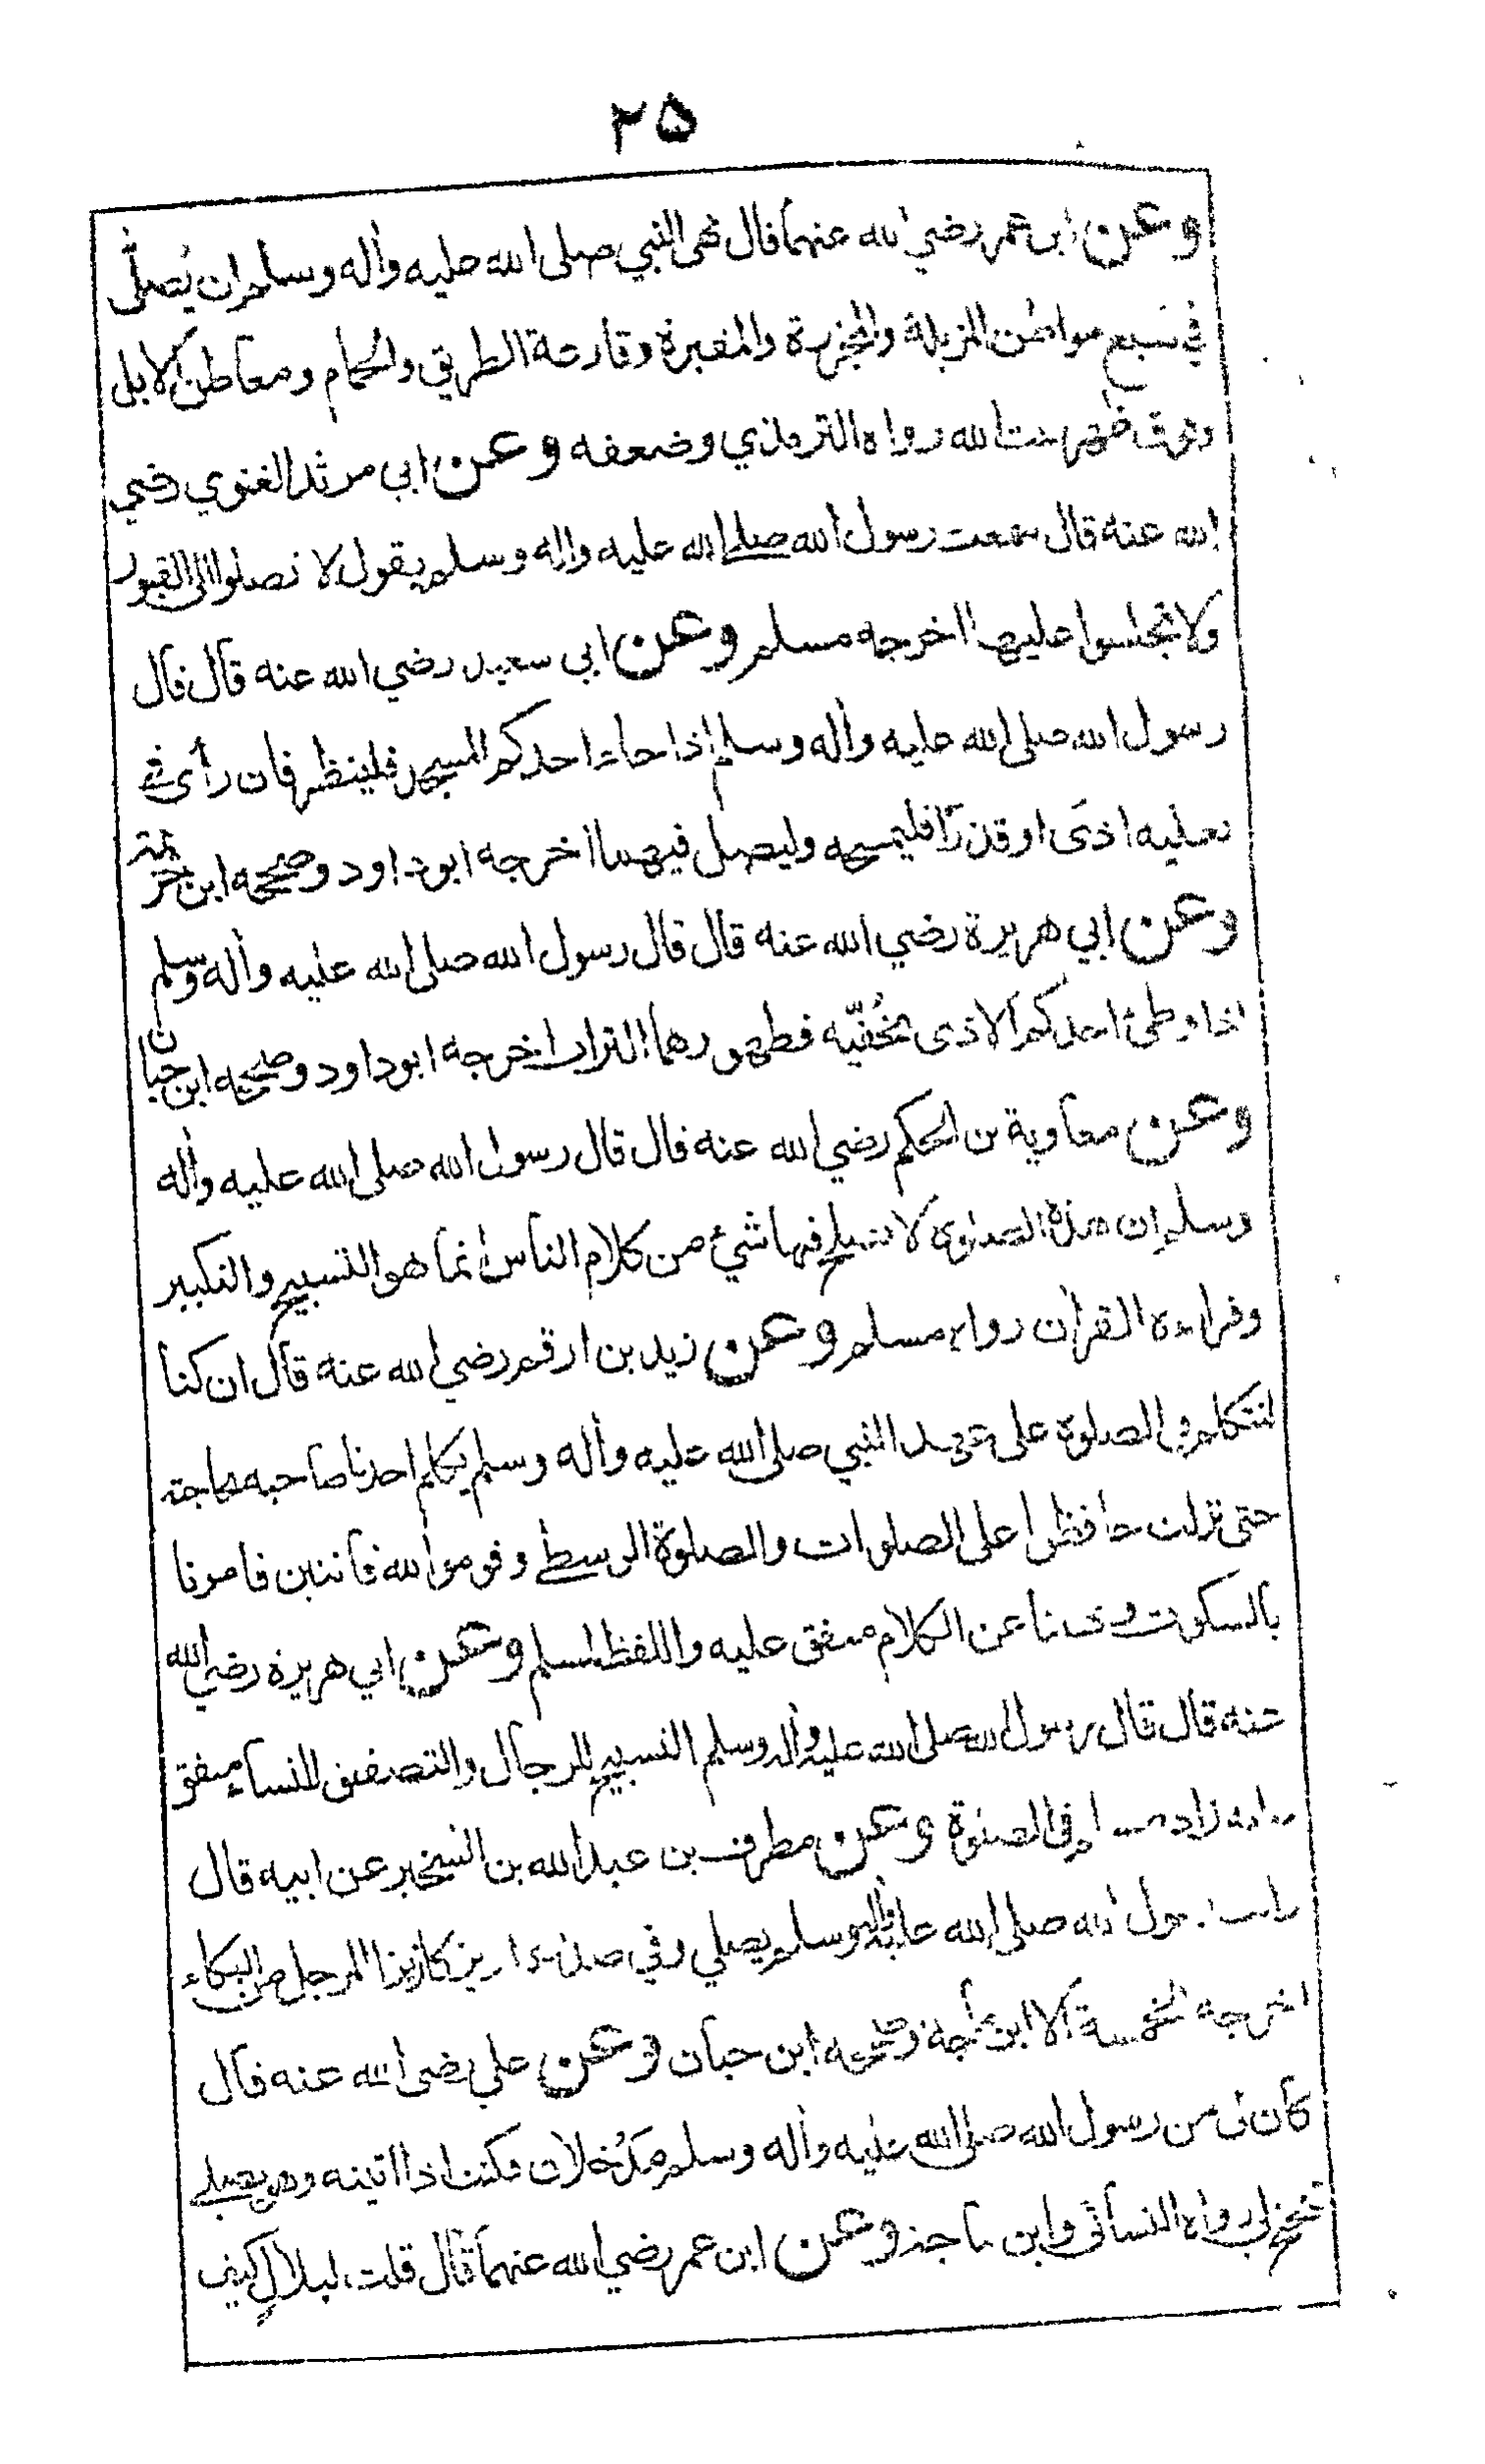 ٢٥
وعن ابن عمر رضي الله عنهما قال نهى النبي صلى الله عليه وأله وسلم ان يُصلّى
في سبع مواطن المزبلة والمجزرة والمقبرة وقارعة الطريق والحمام ومعاطن الابل
وفوق ظهر بيت الله رواه الترمذي وضعفه وعن ابي مرثد الغنوي رضي
الله عنه قال سمعت رسول الله صلى الله عليه واله وسلم يقول لا تصلوا الى القبور
ولا تجلسوا عليها اخرجه مسلم وعن ابي سعيد رضي الله عنه قال قال
رسول الله صلى الله عليه وأله وسلم اذا جاء احدكم المسجد فلينظر فان رأى في
نعليه اذى او قذرًا فليمسحه وليصل فيهما اخرجه ابوداود وصححه ابن خزيمة
وعن ابي هريرة رضي الله عنه قال قال رسول الله صلى الله عليه وأله وسلم
اذا وطئ احدكم الاذى بخُفّيه فطهورهما التراب اخرجه ابوداود وصححه ابن حبان
وعن معاوية بن الحكم رضي الله عنه قال قال رسول الله صلى الله عليه وأله
وسلم ان هذه الصلوة لا تصلح فيها شيء من كلام الناس انما هو التسبيح والتكبير
وقراءة القرأن رواه مسلم وعن زيد بن ارقم رضي الله عنه قال ان كنا
لنتكلم في الصلوة على عهد النبي صلى الله عليه وأله وسلم يكلم احدنا صاحبه بحاجته
حتى نزلت حافظوا على الصلوات والصلوة الوسطى وقوموا لله قانتين فامرنا
بالسكوت ونهينا عن الكلام متفق عليه واللفظ لمسلم وعن ابي هريرة رضي الله
عنه قال قال رسول الله صلى الله عليه وأله وسلم التسبيح للرجال والتصفيق للنساء متفق
عليه زاد مسلم في الصلوة وعن مطرف بن عبد الله بن الشخير عن ابيه قال
رايت رسول الله صلى الله عليه وأله وسلم يصلي وفي صدره ازيز كازيز المرجل من البكاء
اخرجه الخمسة الا ابن ماجة وصححه ابن حبان وعن علي رضى الله عنه قال
كان لى من رسول الله صلى الله عليه وأله وسلم مَدْخلان فكنت اذا اتيته وهو يصلي
تنحنح لي رواه النسائى وابن ماجة وعن ابن عمر رضي الله عنهما قال قلت لبلالٍ كيف